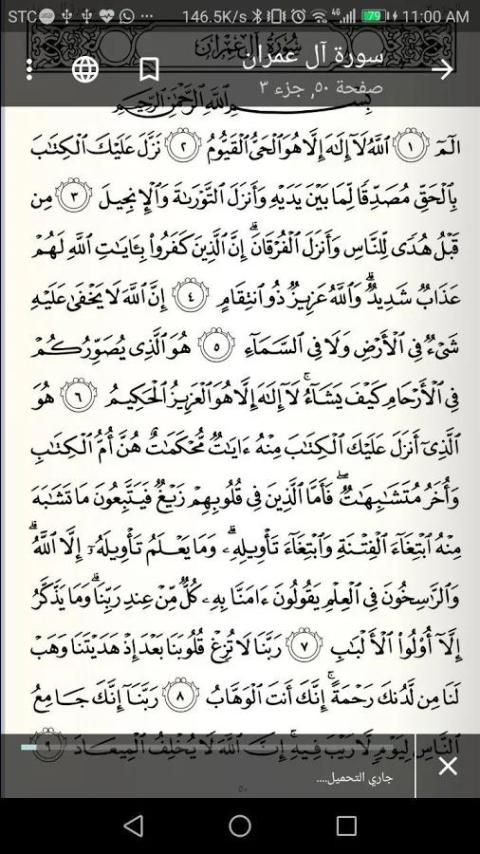 STC ... 146.5K/s 4G 79 11:00 AM
سورة آل عمران
سُورَةُ آلِ عِمْرَانَ
صفحة ٥٠, جزء ٣
بِسْمِ اللَّهِ الرَّحْمَٰنِ الرَّحِيمِ
الٓمٓ ١ ٱللَّهُ لَآ إِلَٰهَ إِلَّا هُوَ ٱلْحَىُّ ٱلْقَيُّومُ ٢ نَزَّلَ عَلَيْكَ ٱلْكِتَٰبَ
بِٱلْحَقِّ مُصَدِّقًا لِّمَا بَيْنَ يَدَيْهِ وَأَنزَلَ ٱلتَّوْرَىٰةَ وَٱلْإِنجِيلَ ٣ مِن
قَبْلُ هُدًى لِّلنَّاسِ وَأَنزَلَ ٱلْفُرْقَانَ ۗ إِنَّ ٱلَّذِينَ كَفَرُوا۟ بِـَٔايَٰتِ ٱللَّهِ لَهُمْ
عَذَابٌ شَدِيدٌ ۗ وَٱللَّهُ عَزِيزٌ ذُو ٱنتِقَامٍ ٤ إِنَّ ٱللَّهَ لَا يَخْفَىٰ عَلَيْهِ
شَىْءٌ فِى ٱلْأَرْضِ وَلَا فِى ٱلسَّمَآءِ ٥ هُوَ ٱلَّذِى يُصَوِّرُكُمْ
فِى ٱلْأَرْحَامِ كَيْفَ يَشَآءُ ۚ لَآ إِلَٰهَ إِلَّا هُوَ ٱلْعَزِيزُ ٱلْحَكِيمُ ٦ هُوَ
ٱلَّذِىٓ أَنزَلَ عَلَيْكَ ٱلْكِتَٰبَ مِنْهُ ءَايَٰتٌ مُّحْكَمَٰتٌ هُنَّ أُمُّ ٱلْكِتَٰبِ
وَأُخَرُ مُتَشَٰبِهَٰتٌ ۖ فَأَمَّا ٱلَّذِينَ فِى قُلُوبِهِمْ زَيْغٌ فَيَتَّبِعُونَ مَا تَشَٰبَهَ
مِنْهُ ٱبْتِغَآءَ ٱلْفِتْنَةِ وَٱبْتِغَآءَ تَأْوِيلِهِۦ ۗ وَمَا يَعْلَمُ تَأْوِيلَهُۥٓ إِلَّا ٱللَّهُ ۗ
وَٱلرَّٰسِخُونَ فِى ٱلْعِلْمِ يَقُولُونَ ءَامَنَّا بِهِۦ كُلٌّ مِّنْ عِندِ رَبِّنَا ۗ وَمَا يَذَّكَّرُ
إِلَّآ أُو۟لُوا۟ ٱلْأَلْبَٰبِ ٧ رَبَّنَا لَا تُزِغْ قُلُوبَنَا بَعْدَ إِذْ هَدَيْتَنَا وَهَبْ
لَنَا مِن لَّدُنكَ رَحْمَةً ۚ إِنَّكَ أَنتَ ٱلْوَهَّابُ ٨ رَبَّنَآ إِنَّكَ جَامِعُ
ٱلنَّاسِ لِيَوْمٍ لَّا رَيْبَ فِيهِ ۚ إِنَّ ٱللَّهَ لَا يُخْلِفُ ٱلْمِيعَادَ ٩
جاري التحميل....
٥٠